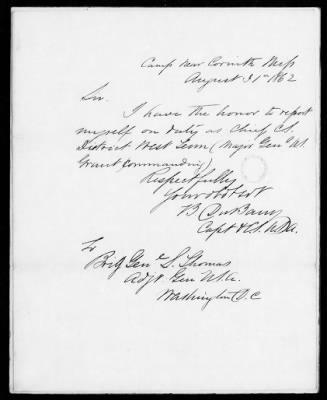 Camp near Corinth Miss
August 31st 1862
Sir.
I have the honor to report
myself on duty as Chief C.S.
District West Tenn (Major Genl U.S.
Grant Commanding)
Respectfully
Your obt Svt
B Du Barry
Capt & C.S. U.S.A.
To
Brig Genl L. Thomas
Adjt Genl U.S.A.
Washington D.C